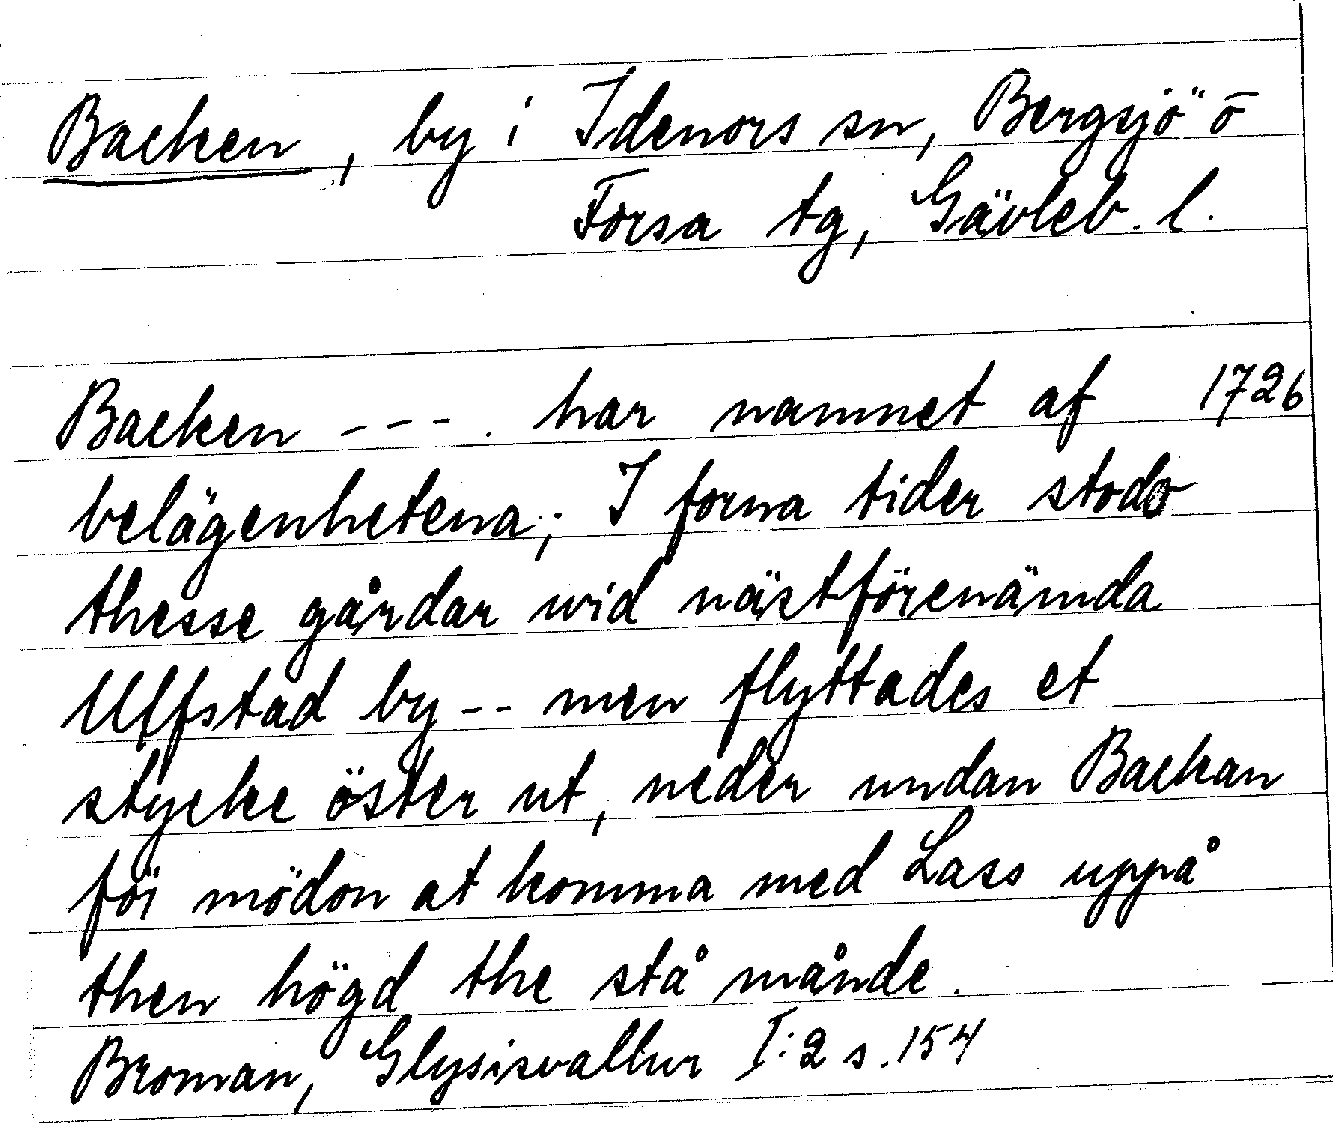 Backen, by i Idenors sn, Bergsjö ō
Forsa tg, Gävleb. l.
Backen ---. har namnet af 1726
belägenhetena; I forna tider stodo
thesse gårdar wid nästförenämda
Ulfstad by -- men flyttades et
stycke öster ut, neder undan Backan
för mödon at komma med Lass uppå
then högd the stå månde.
Broman, Glysisvallur I:2 s. 154